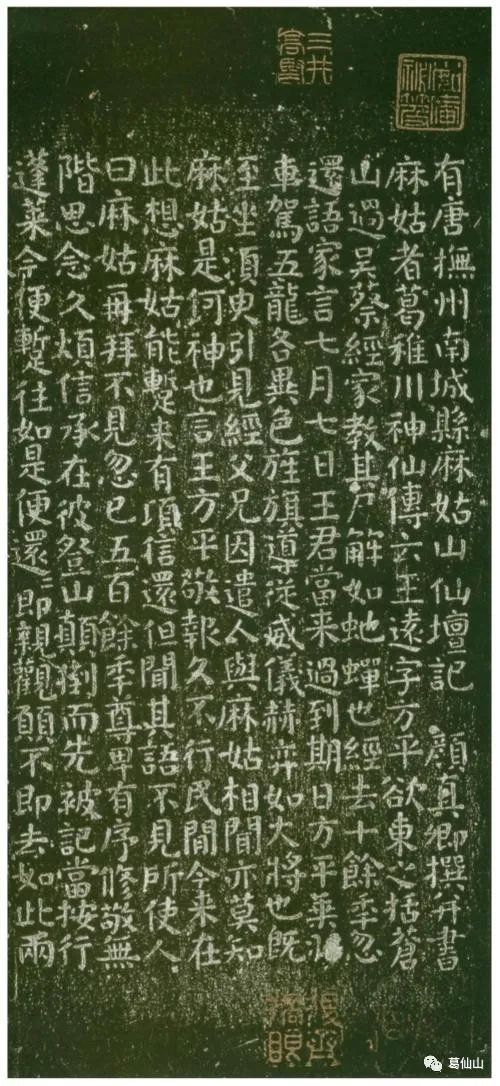 有唐撫州南城縣麻姑山仙壇記 顏真卿撰并書
麻姑者葛稚川神仙傳云王遠字方平欲東之括蒼
山過吳蔡經家教其尸解如虵蟬也經去十餘秊忽
還語家言七月七日王君當来過到期日方平乗
車駕五龍各異色旌旗導従威儀赫弈如大將也既
至坐湏臾引見經父兄因遣人與麻姑相聞亦莫知
麻姑是何神也言王方平敬報久不行民間今来在
此想麻姑能蹔来有頃信還但聞其語不見所使人
曰麻姑再拜不見忽已五百餘秊尊卑有序修敬無
階思念久煩信承在彼登山顛倒而先被記當按行
蓬萊今便蹔往如是便還〻即親觀願不即去如此兩
三井高堅
葛仙山